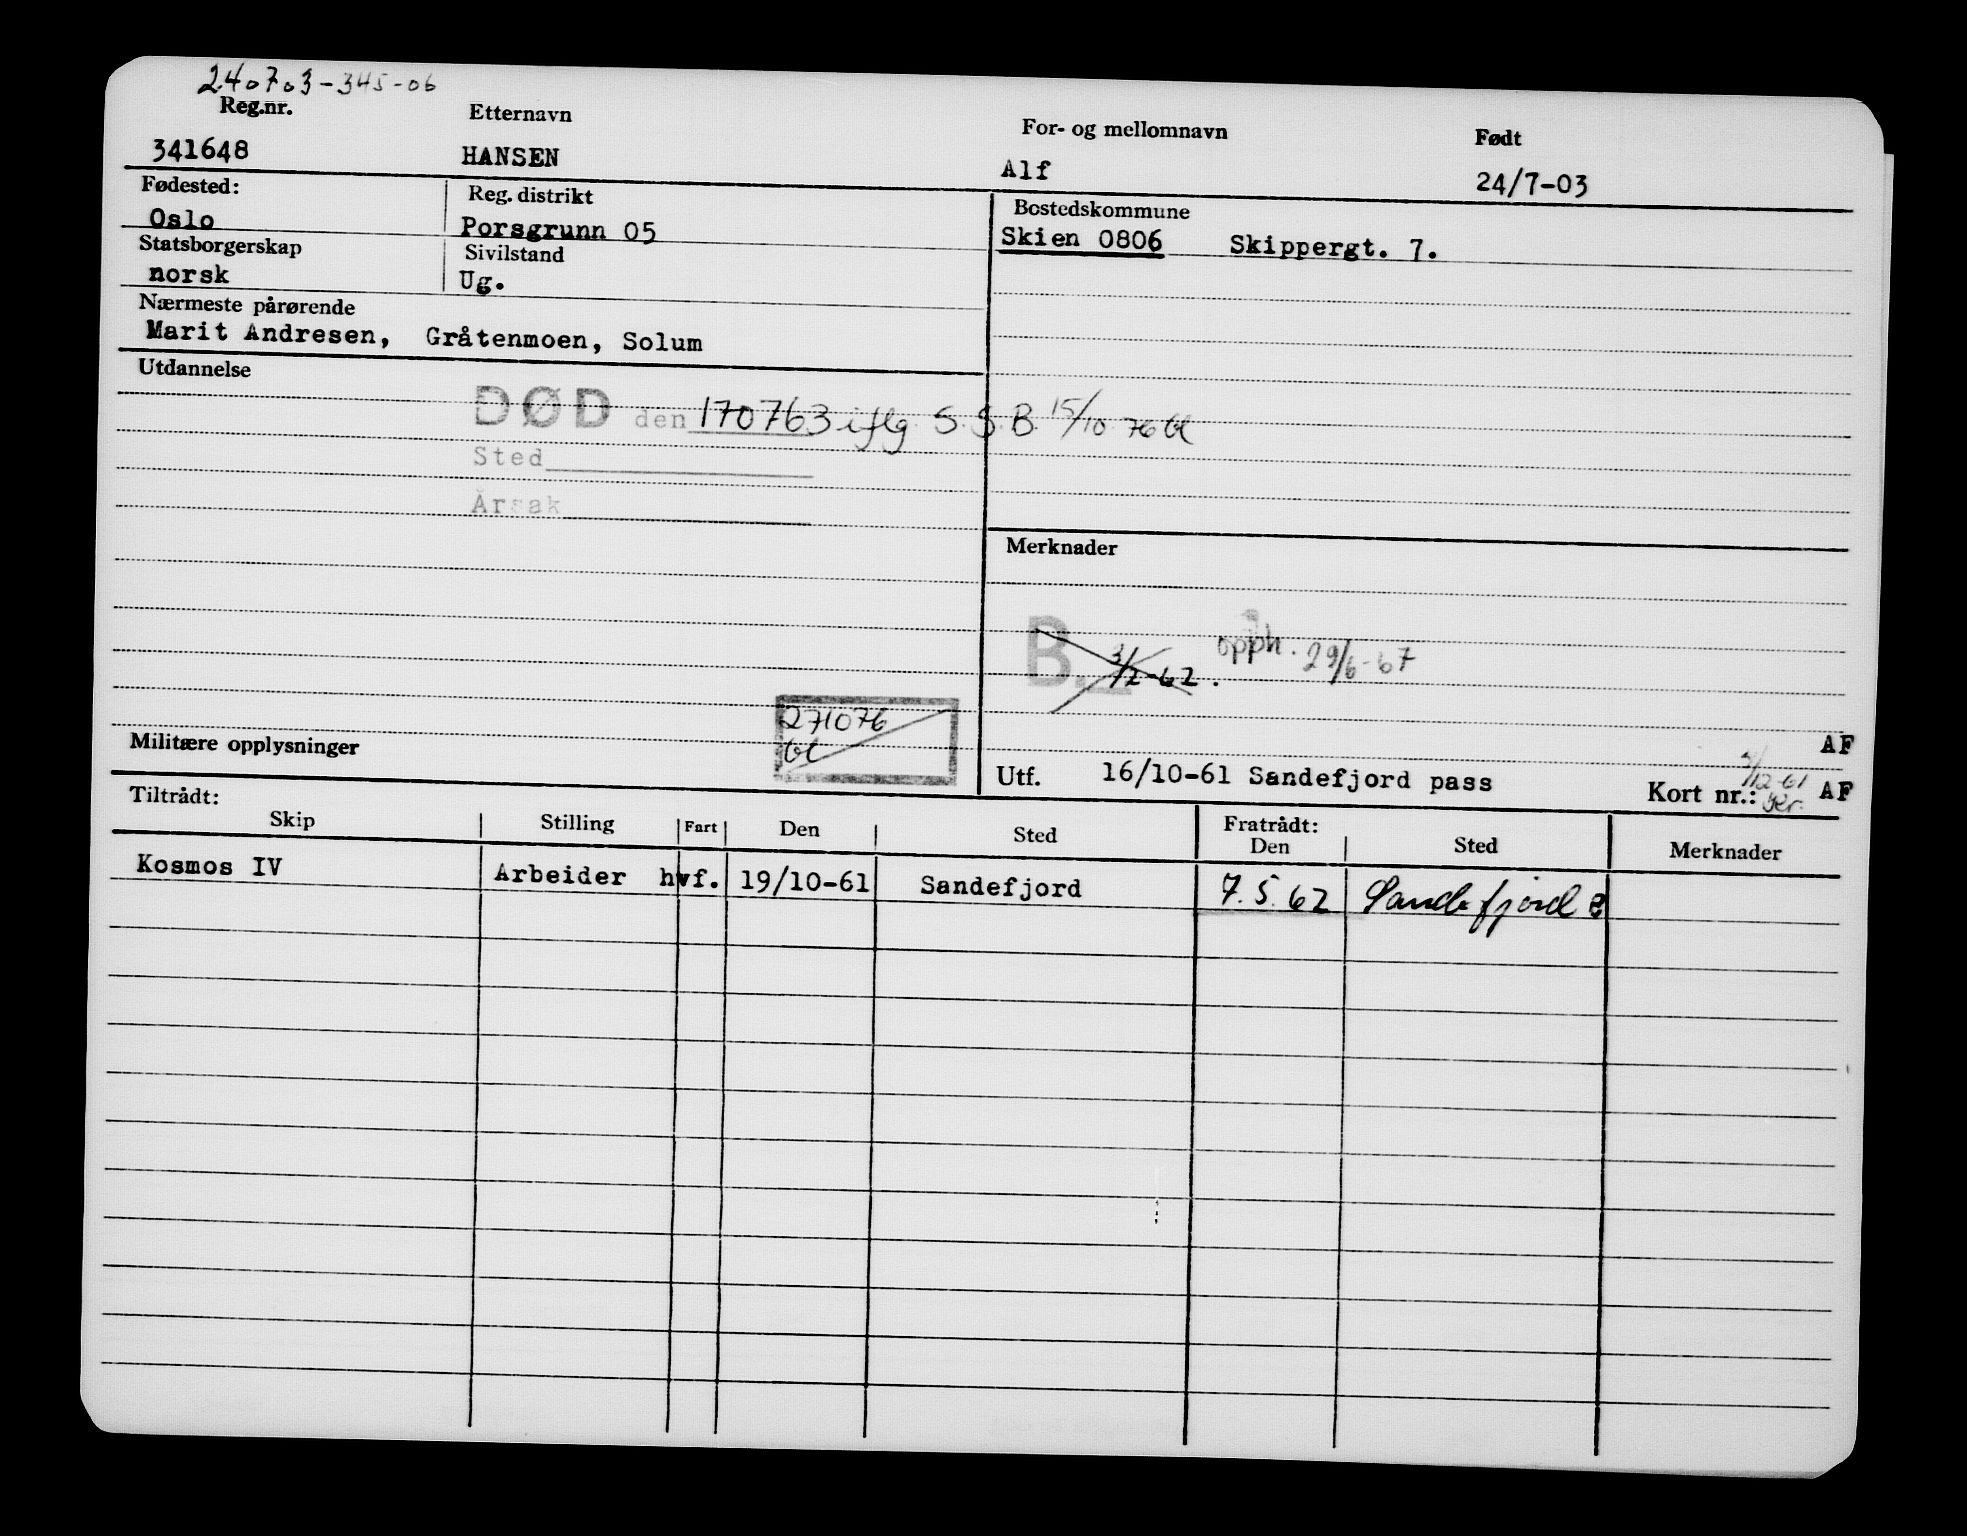 240703-345-06
Reg.nr. Etternavn For- og mellomnavn Født
341648 HANSEN Alf 24/7-03
Fødested: Reg. distrikt Bostedskommune
Oslo Porsgrunn 05 Skien 0806 Skippergt. 7.
Statsborgerskap Sivilstand
norsk Ug.
Nærmeste pårørende
Marit Andresen, Gråtenmoen, Solum
Utdannelse
DØD den 170763 iflg. S.S.B. 15/10 76
Sted
Årsak
Merknader
B. 3/2-62. opph. 29/6-67
271076
Militære opplysninger
AF
Utf. 16/10-61 Sandefjord pass Kort nr.: AF
Tiltrådt: Fratrådt:
Skip Stilling Fart Den Sted Den Sted Merknader
Kosmos IV Arbeider hvf. 19/10-61 Sandefjord 7.5.62 Sandefjord